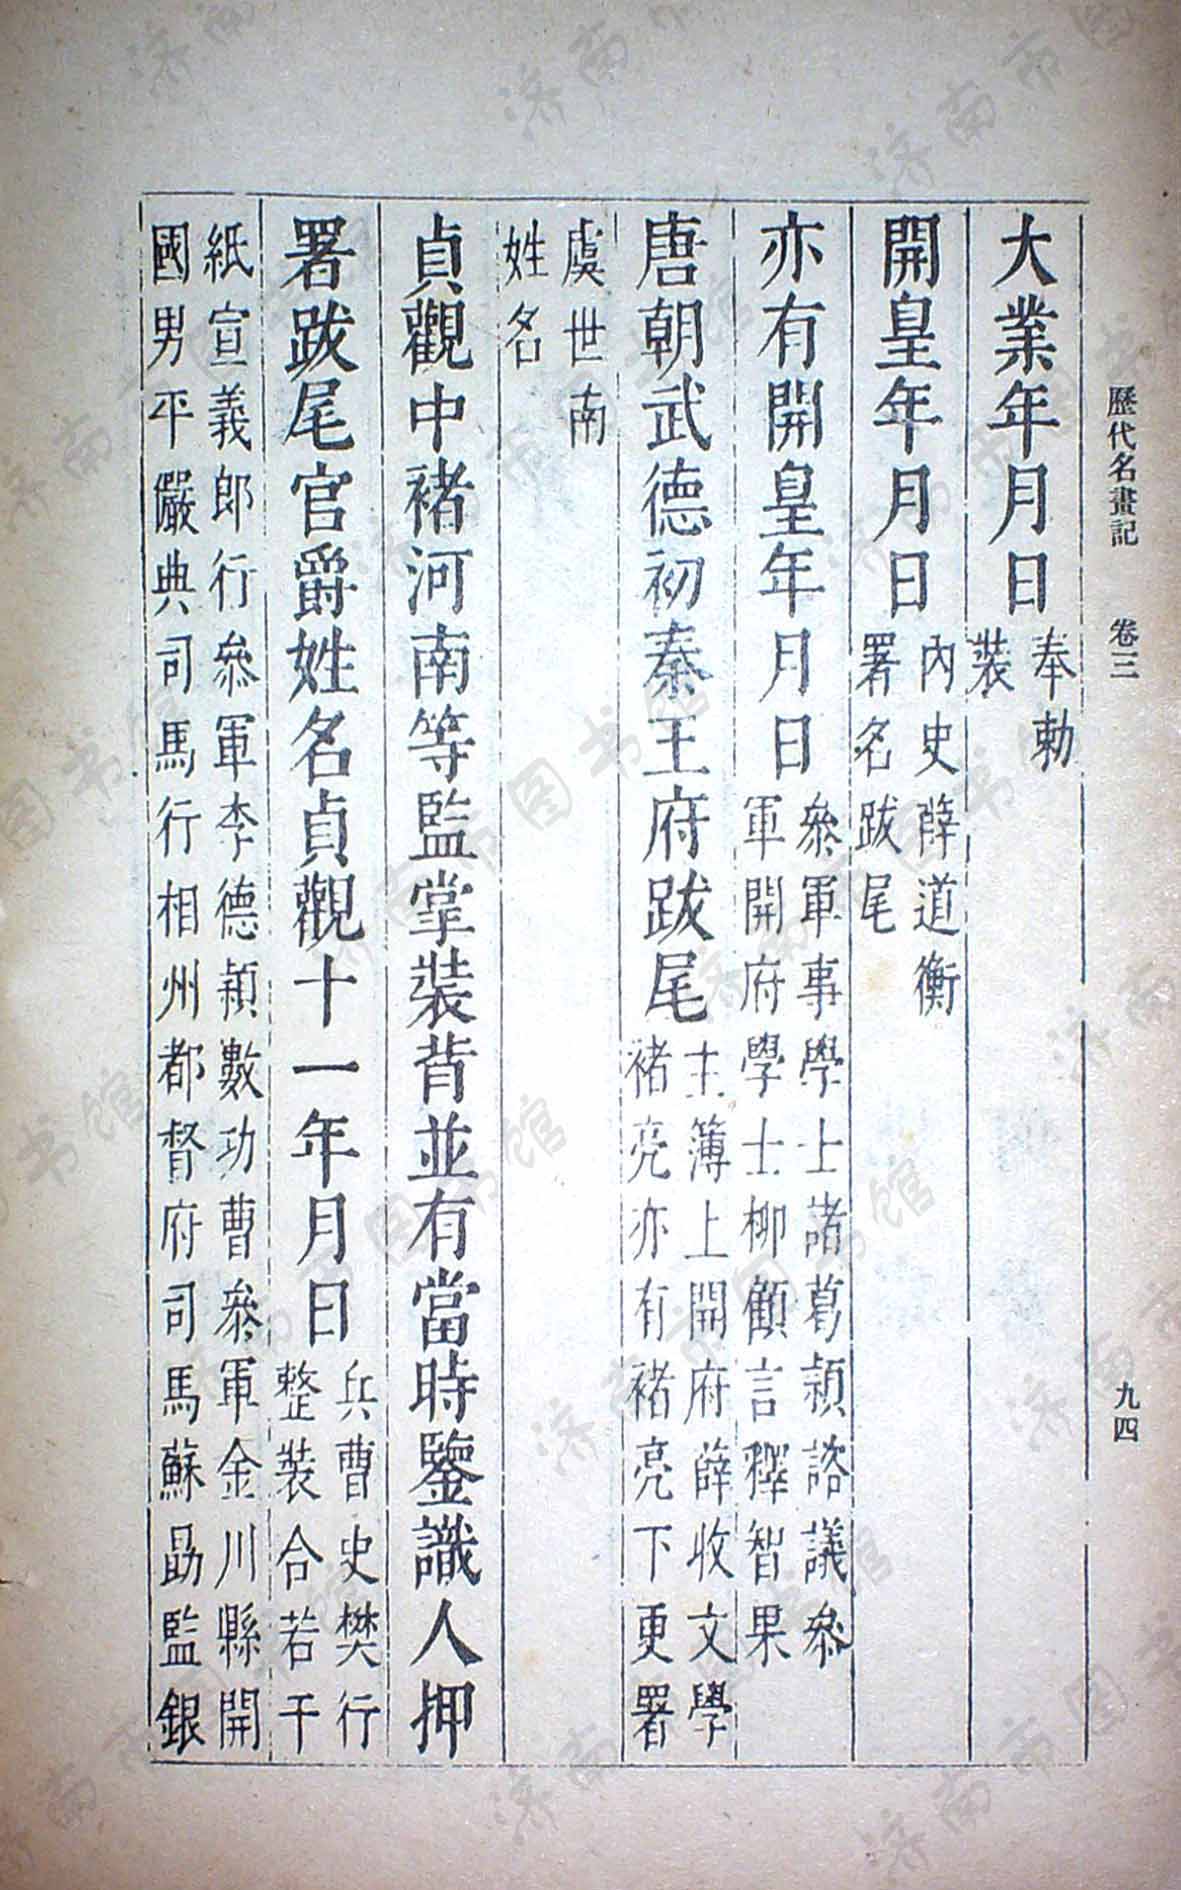 歷代名畫記　卷三　九四
大業年月日奉勅
裝
開皇年月日內史薛道衡
署名跋尾
亦有開皇年月日叅軍事學士諸葛潁諮議叅
軍開府學士柳顧言釋智果
唐朝武德初秦王府跋尾主簿上開府薛收文學
褚亮亦有褚亮下更署
虞世南
姓名
貞觀中褚河南等監掌裝背並有當時鑒識人押
署跋尾官爵姓名貞觀十一年月日兵曹史樊行
整裝合若干
紙宣義郎行叅軍李德潁數功曹叅軍金川縣開
國男平儼典司馬行相州都督府司馬蘇勗監銀
济南市图书馆